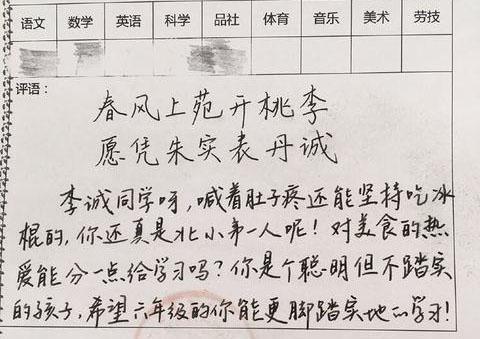 语文 数学 英语 科学 品社 体育 音乐 美术 劳技
评语:
春风上苑开桃李
愿凭朱实表丹诚
李诚同学呀,喊着肚子疼还能坚持吃冰
棍的,你还真是北小第一人呢!对美食的热
爱能分一点给学习吗?你是个聪明但不踏实
的孩子,希望六年级的你能更脚踏实地的学习!